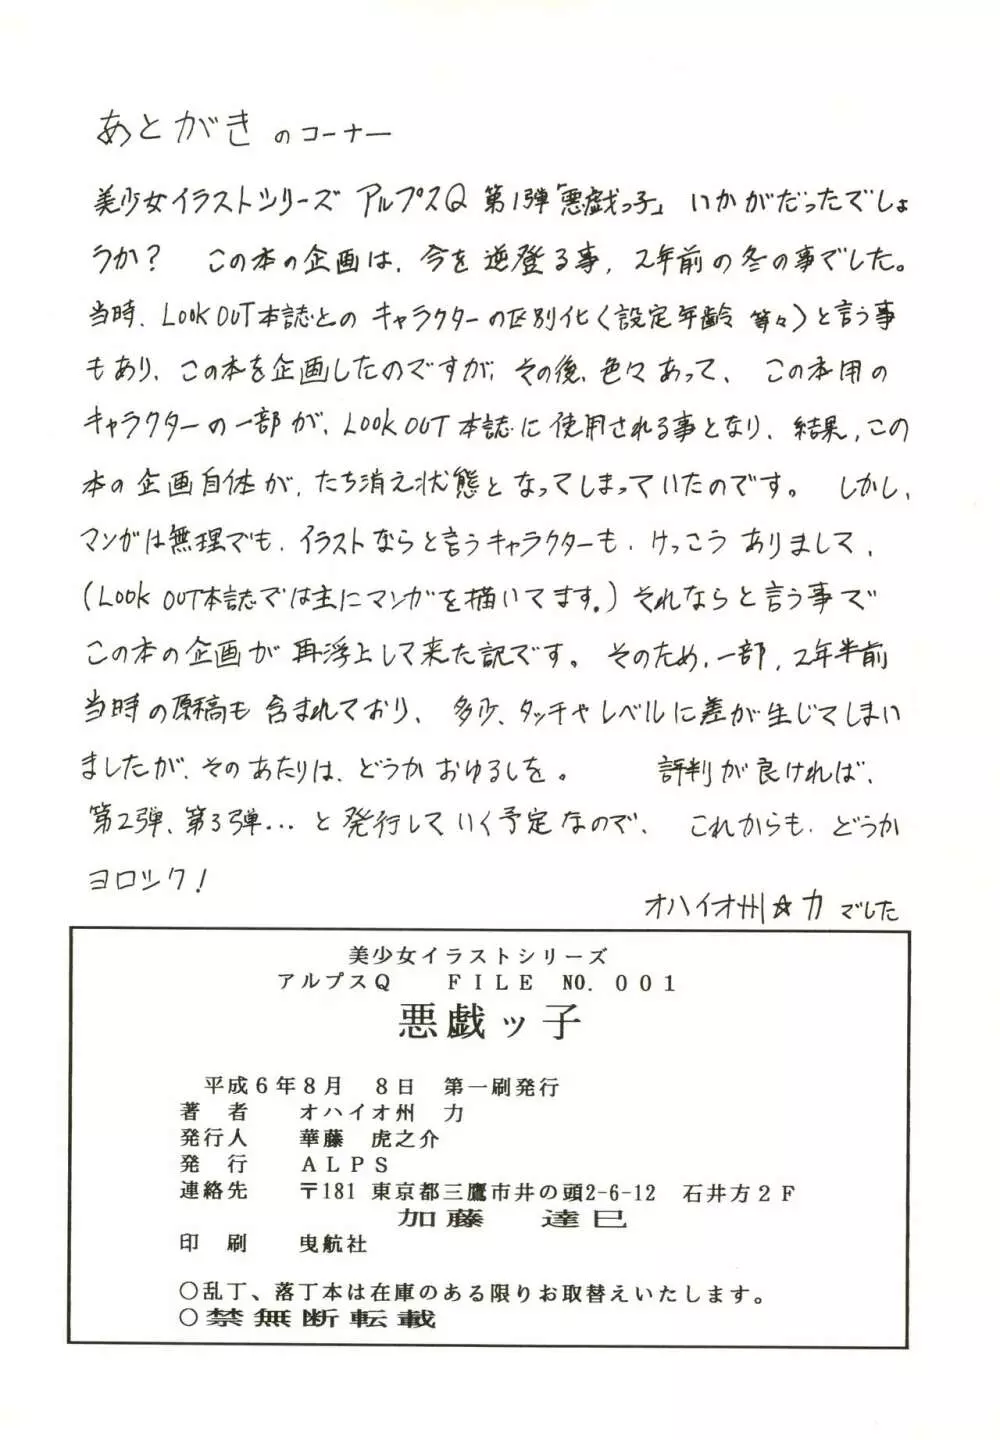 あとがきのコーナー
美少女イラストシリーズ アルプスQ 第1弾「悪戯っ子」いかがだったでしょ
うか? この本の企画は、今を逆登る事、2年前の冬の事でした。
当時、LOOK OUT本誌とのキャラクターの区別化く設定年齢 等々>と言う事
もあり、この本を企画したのですが、その後、色々あって、この本用の
キャラクターの一部が、LOOK OUT本誌に使用される事となり、結果、この
本の企画自体が、たち消え状態となってしまっていたのです。 しかし、
マンガは無理でも、イラストならと言うキャラクターも、けっこうありまして、
(LOOK OUT本誌では主にマンガを描いてます。)それならと言う事で
この本の企画が再浮上して来た訳です。そのため、一部、2年半前
当時の原稿も含まれており、多少、タッチやレベルに差が生じてしまい
ましたが、そのあたりは、どうかおゆるしを。 評判が良ければ、
第2弾、第3弾…と発行していく予定なので、これからも、どうか
ヨロシク!
オハイオ州☆力 でした
美少女イラストシリーズ
アルプスQ FILE NO.001
悪戯ッ子
平成6年8月 8日 第一刷発行
著 者 オハイオ州 力
発行人 華藤 虎之介
発 行 ALPS
連絡先 〒181 東京都三鷹市井の頭2-6-12 石井方2F
加藤 達巳
印 刷 曳航社
○乱丁、落丁本は在庫のある限りお取替えいたします。
○禁無断転載